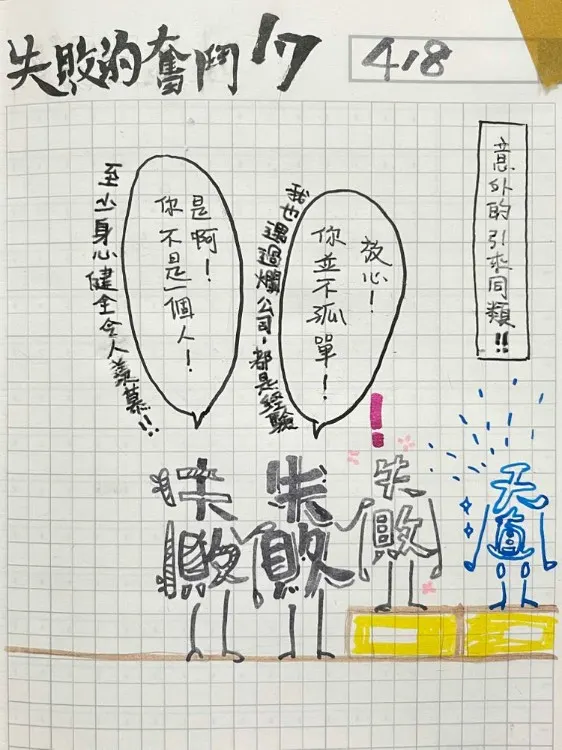 失敗的奮鬥17
418
意外的引來同類!!
放心!
你並不孤單!
我也遇過爛公司,都是經驗
是啊!
你不是一個人!
至少身心健全令人羨慕!!
!
失敗
失敗
失敗